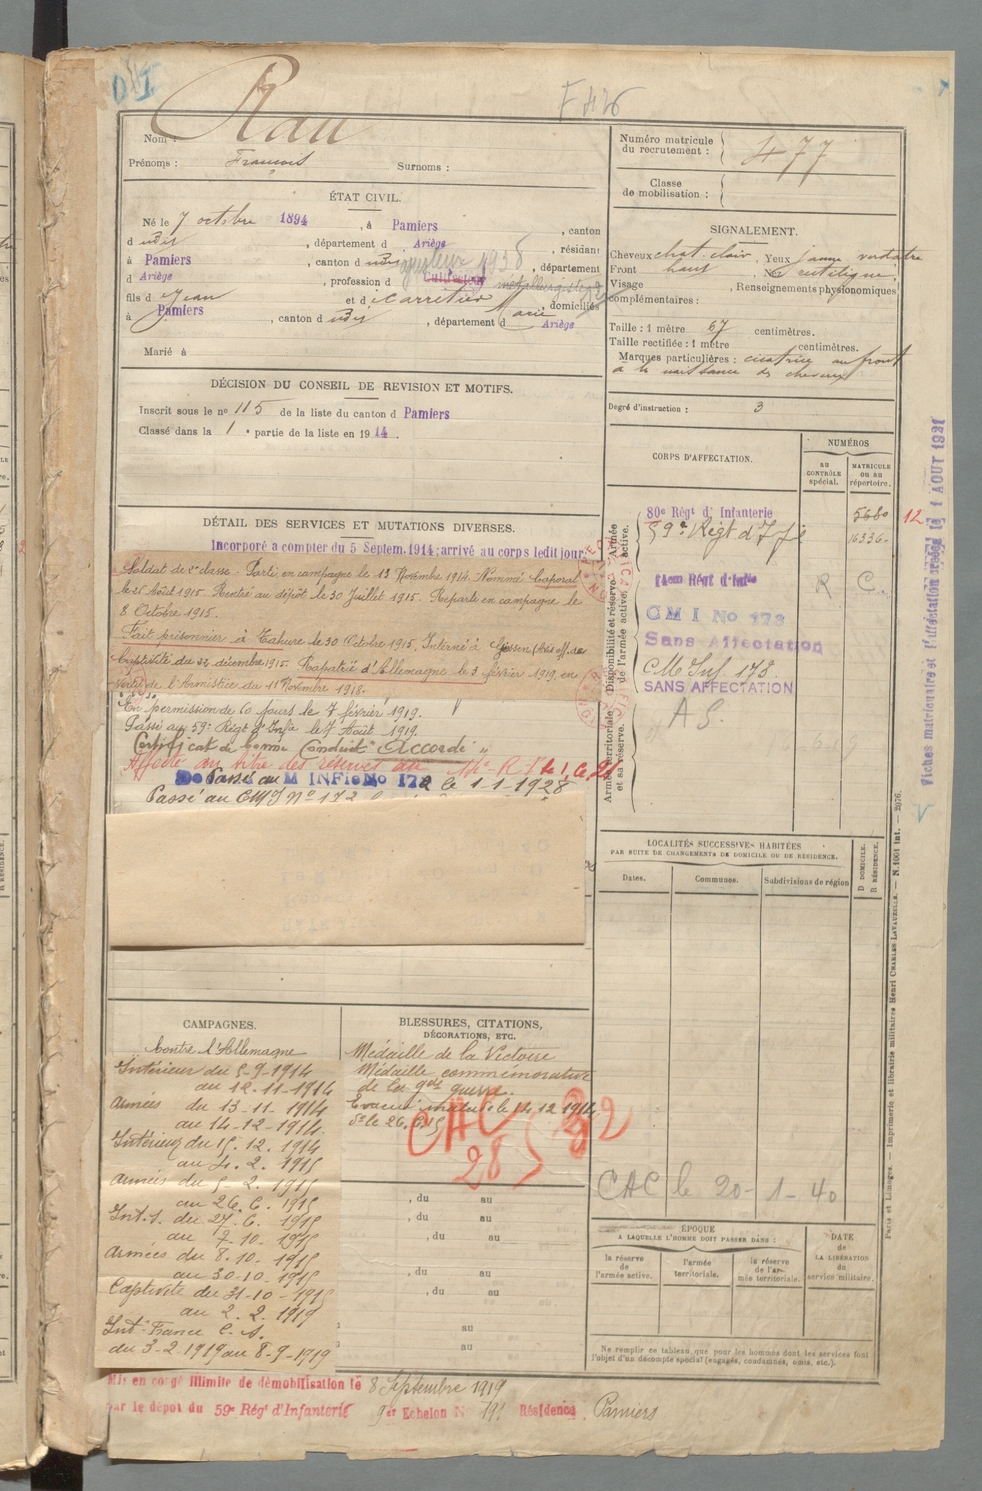 F 426
Nom : Rau
Prénoms : François Surnoms :
Numéro matricule du recrutement : 477
Classe de mobilisation :
ÉTAT CIVIL.
Né le 7 octobre 1894, à Pamiers, canton
d udit, département d Ariège, résidant
à Pamiers, canton d udit, département
d Ariège, profession d Cultivateur
fils d Jean et d Carretier Marie, domiciliés
à Pamiers, canton d udit, département d Ariège
Marié à
SIGNALEMENT.
Cheveux chat. clair, Yeux jaune verdâtre
Front haut, Nez rectiligne
Visage , Renseignements physionomiques
complémentaires :
Taille : 1 mètre 67 centimètres.
Taille rectifiée : 1 mètre centimètres.
Marques particulières : cicatrice au front
à la naissance des cheveux
Degré d'instruction : 3
DÉCISION DU CONSEIL DE REVISION ET MOTIFS.
Inscrit sous le no 115 de la liste du canton d Pamiers
Classé dans la 1e partie de la liste en 1914.
DÉTAIL DES SERVICES ET MUTATIONS DIVERSES.
Incorporé a compter du 5 Septem. 1914; arrivé au corps ledit jour
Soldat de 2e classe. Parti en campagne le 13 Novembre 1914. Nommé Caporal
le 26 Août 1915. Rentré au dépôt le 30 Juillet 1915. Reparti en campagne le
8 Octobre 1915.
Fait prisonnier à Tahure le 30 Octobre 1915, Interné à Giessen
Captivité du 31 décembre 1915. Rapatrié d'Allemagne le 3 février 1919, en
vertu de l'Armistice du 11 Novembre 1918.
En permission de 60 jours le 7 février 1919.
Passé au 59e Régt d'Infie le 7 Août 1919.
Certificat de bonne Conduite "Accordé"
Affecté au titre des réserves au
Passé au M INFie No 172 le 1-1-1928
Passé au CMI No 172
CORPS D'AFFECTATION.
NUMÉROS
AU CONTRÔLE spécial.
MATRICULE ou au répertoire.
Armée active.
80e Régt d'Infanterie 5680
59e Régt d'Infie 16336
Disponibilité et réserve de l'armée active.
14em Régt d'Infie R C.
CMI No 173
Sans Affectation
CM Inf. 173
SANS AFFECTATION
Armée territoriale et sa réserve.
12
Fiches matriculaire et d'affectation
1 AOUT 1921
LOCALITÉS SUCCESSIVES HABITÉES
PAR SUITE DE CHANGEMENTS DE DOMICILE OU DE RÉSIDENCE.
Dates. Communes. Subdivisions de région
D DOMICILE.
R RÉSIDENCE.
CAC le 20-1-40
CAMPAGNES.
Contre l'Allemagne
Intérieur du 5-9-1914
au 12-11-1914
Armées du 13-11-1914
au 14-12-1914.
Intérieur du 15.12.1914
au 4.2.1915
Armées du 5-2.1915
au 26.6.1915
Int. du 27-6.1915
au 7-10.1915
Armées du 8.10.1915
au 30-10-1915
Captivité du 31-10-1915
au 2.2.1919
Int. France C.A.
du 3-2.1919 au 8-9-1919
BLESSURES, CITATIONS,
DÉCORATIONS, ETC.
Médaille de la Victoire
Médaille commémorative
de la gde guerre.
Evacué malade le 14.12.1914
do le 26.6.15
CAC
28
, du au
, du au
, du au
, du au
, du au
au
au
ÉPOQUE
A LAQUELLE L'HOMME DOIT PASSER DANS :
la réserve de l'armée active.
l'armée territoriale.
la réserve de l'armée territoriale.
DATE de LA LIBÉRATION du service militaire.
Ne remplir ce tableau que pour les hommes dont les services font
l'objet d'un décompte spécial (engagés, condamnés, omis, etc.).
Paris et Limoges. — Imprimerie et librairie militaires Henri CHARLES-LAVAUZELLE. — N. 1061 int. — 2076.
Mis en congé illimité de démobilisation le 8 Septembre 1919
par le dépot du 59e Régt d'Infanterie 9er Echelon No 791 Résidence, Pamiers